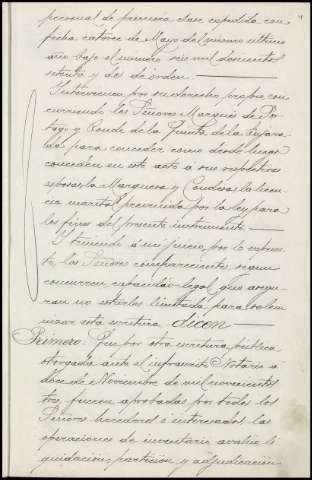 personal de primera clase expedida con
fecha catorce de Mayo del mismo ultimo
año bajo el numero seis mil doscientos
setenta y dos de orden.
Intervienen por su derecho propio con
curriendo los Señores Marqués de Po-
tago y Conde de la Quinta de la Enjara
da para conceder como desde luego
conceden en este acto á sus respectivas
esposas la Marquesa y Condesa la licen
cia marital prevenida por la ley para
los fines del presente instrumento
Y teniendo á mi juicio, por lo expues
to, los Señores comparecientes, segun
concurren capacidad legal, que asegu
ran no serles limitada para solem
nizar esta escritura dicen
Primero: Que por otra escritura publica
otorgada ante el infrascrito Notario á
doce de Noviembre de mil novecientos
tres, fueron aprobadas por todos los
Señores herederos é interesados las
operaciones de inventario, avalúo, li
quidacion, particion y adjudicacion